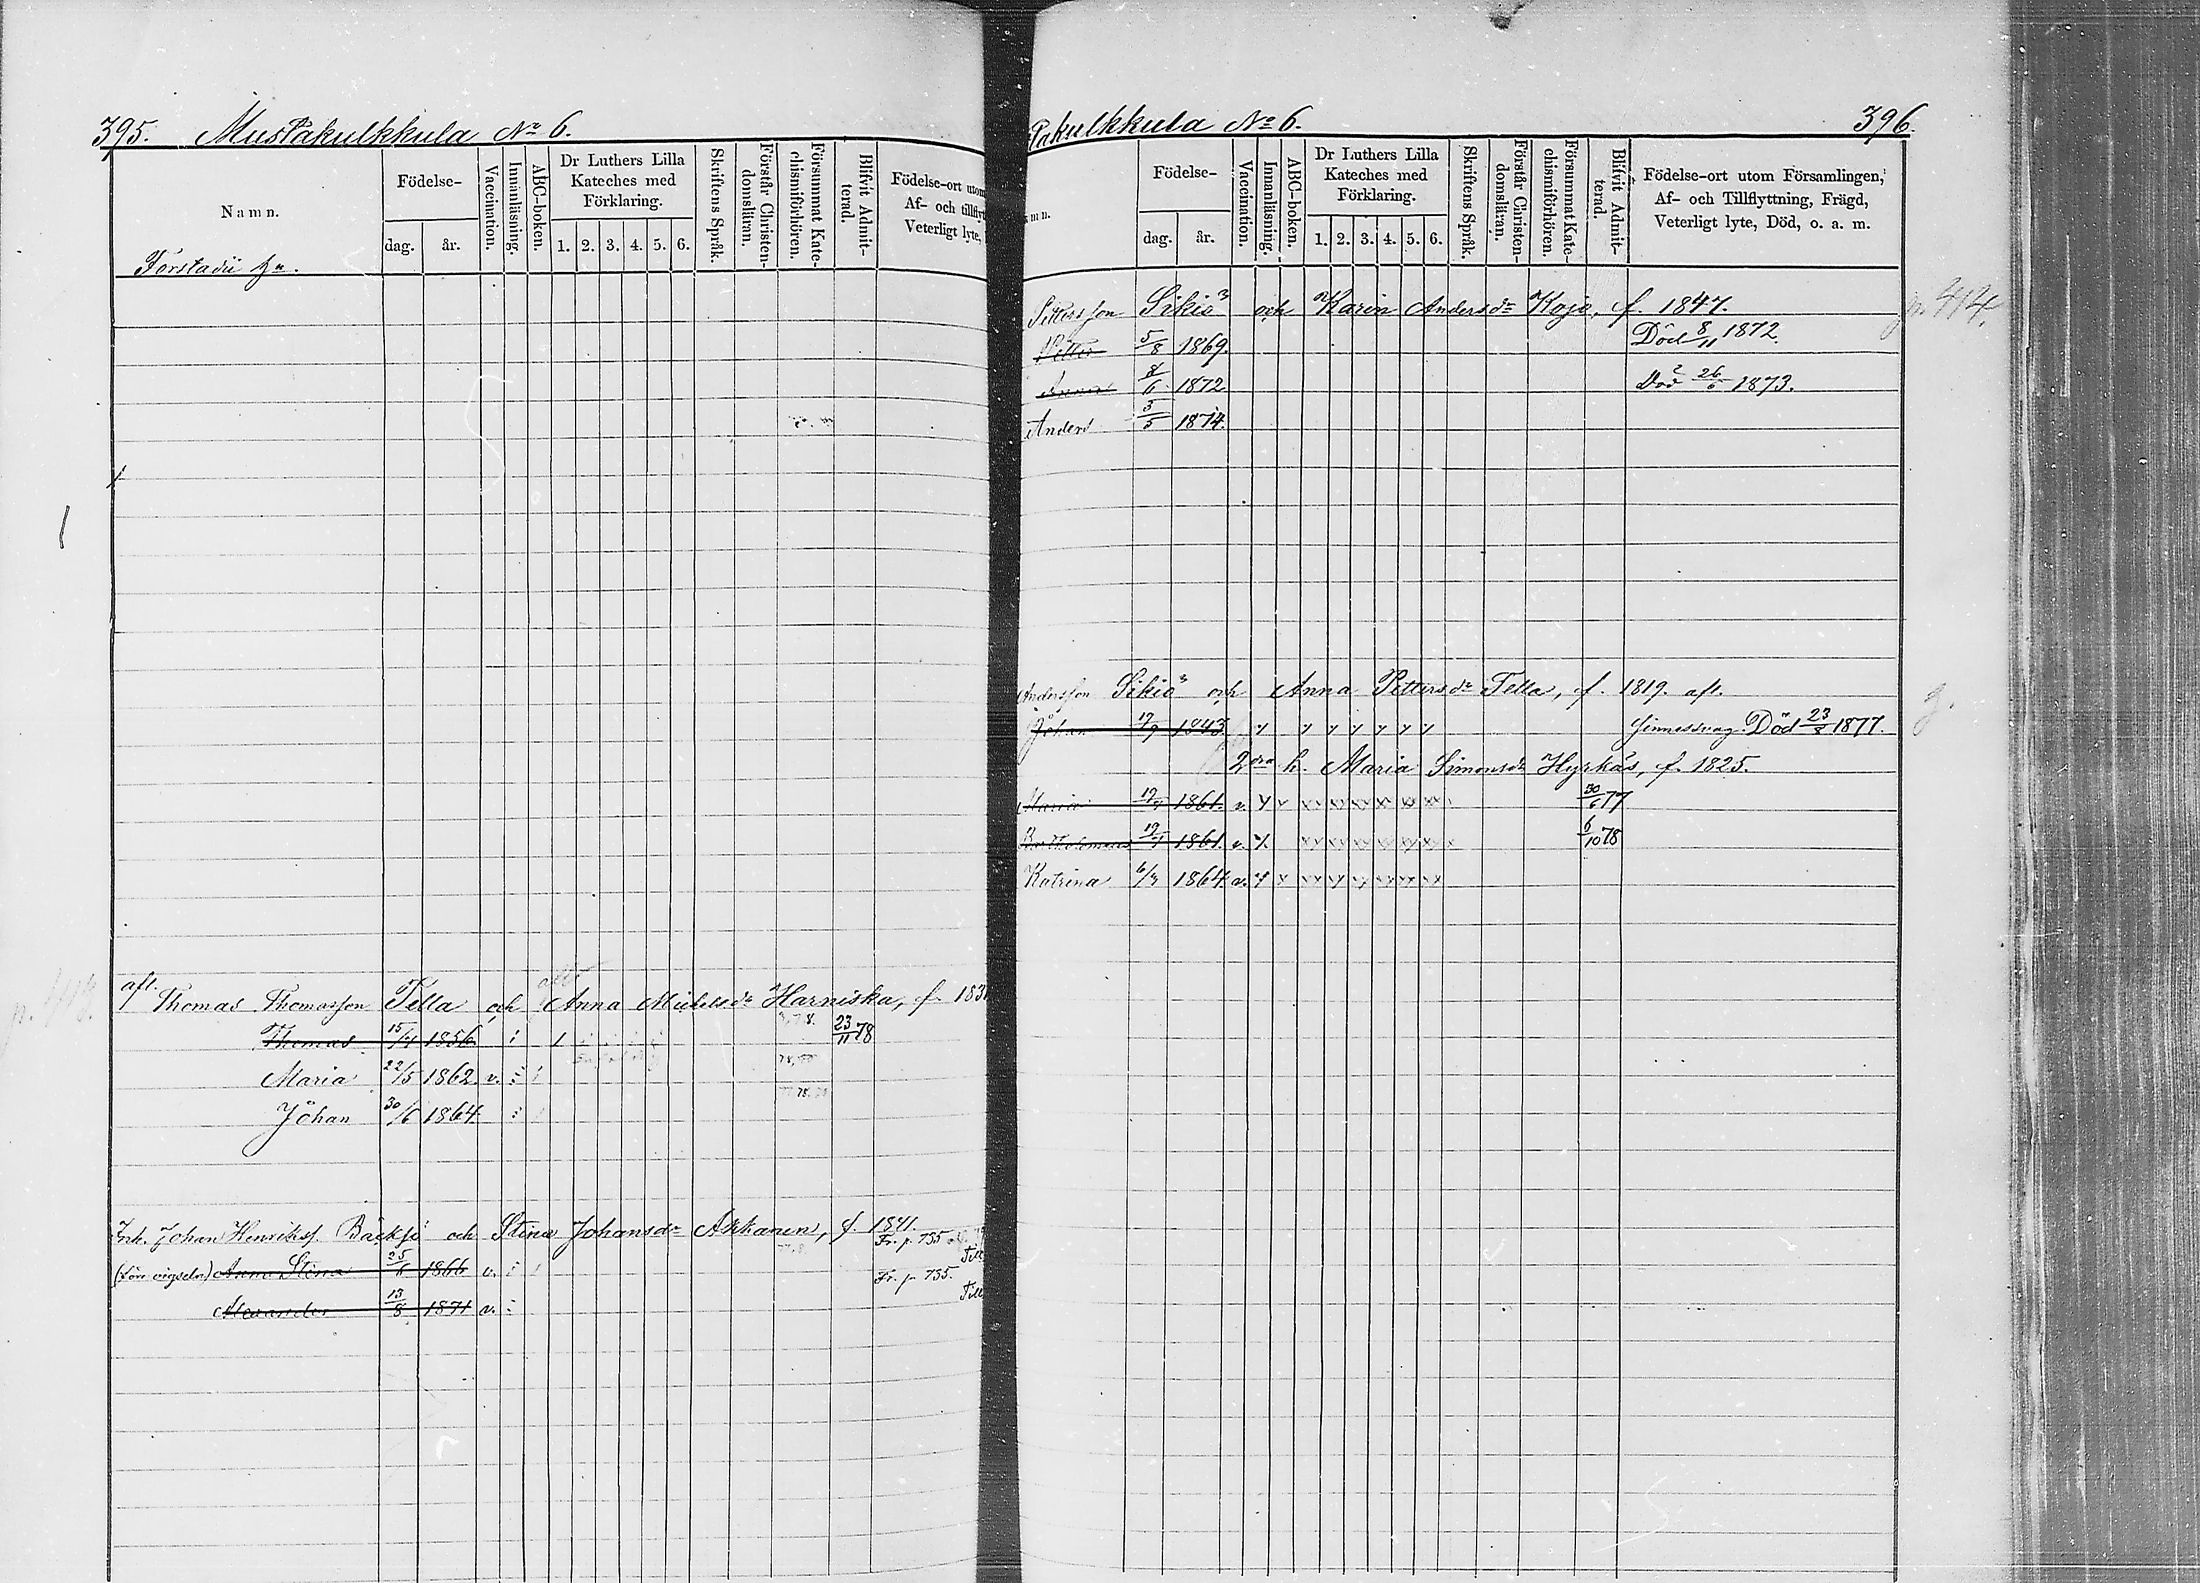 395. Mustakulkkula No 6.
Namn.
Födelse-
dag. år.
Vaccination.
Innanläsning.
ABC-boken.
Dr Luthers Lilla
Kateches med
Förklaring.
1. 2. 3. 4. 5. 6.
Skriftens Språk.
Förstår Christen-
domsläran.
Försummat Kate-
chismiförhören.
Blifvit Admit-
terad.
Födelse-ort utom
Af- och tillflyt
Veterligt lyte,
aft.
Thomas Thomasson Tella och Anna Michelsdr Harniska, f. 183
Thomas 15/4 1856 1 23/11 78
Maria 22/5 1862. v.
Johan 30/6 1864
Inh. Johan Henrikss. Bäcksi och Stina Johansdr Akkanen, f. 1841.
Fr. p. 735
(före vigseln) Anna Stina 25/6 1866 v. Fr. p. 735. Till
Alexander 13/8 1871 v. Till
takulkkula No 6. 396.
mn.
Födelse-
dag. år.
Vaccination.
Innanläsning.
ABC-boken.
Dr Luthers Lilla
Kateches med
Förklaring.
1. 2. 3. 4. 5. 6.
Skriftens Språk.
Förstår Christen-
domsläran.
Försummat Kate-
chismiförhören.
Blifvit Admit-
terad.
Födelse-ort utom Församlingen,
Af- och Tillflyttning, Frägd,
Veterligt lyte, Död, o. a. m.
Pettersson Sikiö och Karin Andersdr Koje, f. 1847. p. 414.
Petter 5/8 1869. Död 8/11 1872
Anna 8/6 1872 Död 26/6 1873.
Anders 3/5 1874.
Andersson Sikiö och Anna Pettersdr Tella, f. 1819. aft.
Johan 19/9 1843 Sinnessvag. Död 23/ 1877.
2dra h. Maria Simonsdr Hyrkäs, f. 1825.
Maria 19/ 1861. v. 30/6 77
Bartholomeus 19/ 1861. v. 6/10 78
Katrina 6/3 1864 v.